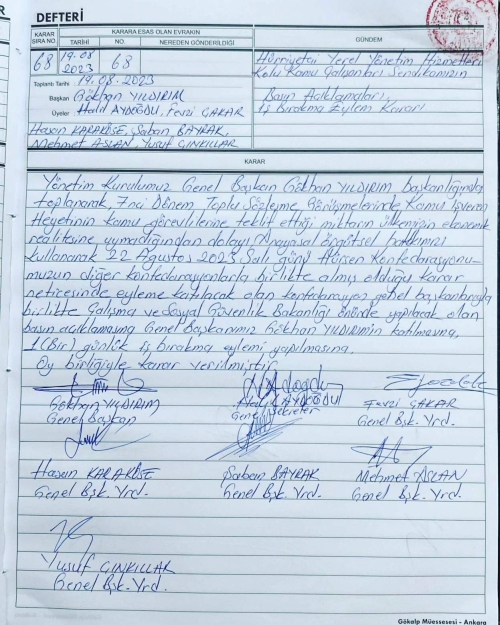 DEFTERİ
KARAR SIRA NO.
KARARA ESAS OLAN EVRAKIN
TARİHİ
NO.
NEREDEN GÖNDERİLDİĞİ
GÜNDEM
68
19.08.2023
68
Toplantı Tarihi 19.08.2023
Başkan Gökhan YILDIRIM
Üyeler Halil AYDOĞDU, Fevzi ÇAKAR
Hasan KARAKÖSE, Şaban BAYRAK,
Mehmet ASLAN, Yusuf ÇINKILLAR
Hürriyetçi Yerel Yönetim Hizmetleri
Kolu Kamu Çalışanları Sendikamızın
Basın Açıklamaları,
İş Bırakma Eylem Kararı
KARAR
Yönetim Kurulumuz Genel Başkan Gökhan YILDIRIM, başkanlığında
toplanarak, 7.nci Dönem Toplu Sözleşme Görüşmelerinde Kamu İşveren
Heyetinin kamu görevlilerine teklif ettiği miktarın ülkemizin ekonomik
realitesine uymadığından dolayı Anayasal örgütsel hakkımızı
kullanarak 22 Ağustos 2023 Salı günü Hürsen Konfederasyonu-
muzun diğer konfederasyonlarla birlikte almış olduğu karar
neticesinde eyleme katılacak olan konfederasyon genel başkanlarıyla
birlikte Çalışma ve Sosyal Güvenlik Bakanlığı önünde yapılacak olan
basın açıklamasına Genel Başkanımız Gökhan YILDIRIM'ın katılmasına,
1 (Bir) günlük iş bırakma eylemi yapılmasına,
Oy birliğiyle karar verilmiştir.
Gökhan YILDIRIM
Genel Başkan
Halil AYDOĞDU
Genel Sekreter
Fevzi ÇAKAR
Genel Bşk. Yrd.
Hasan KARAKÖSE
Genel Bşk. Yrd.
Şaban BAYRAK
Genel Bşk. Yrd.
Mehmet ASLAN
Genel Bşk. Yrd.
Yusuf ÇINKILLAR
Genel Bşk. Yrd.
Gökalp Müessesesi - Ankara